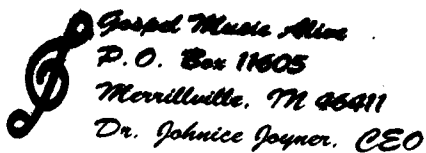 Gospel Music Alive
P. O. Box 11605
Merrillville, IN 46411
Dr. Johnice Joyner, CEO